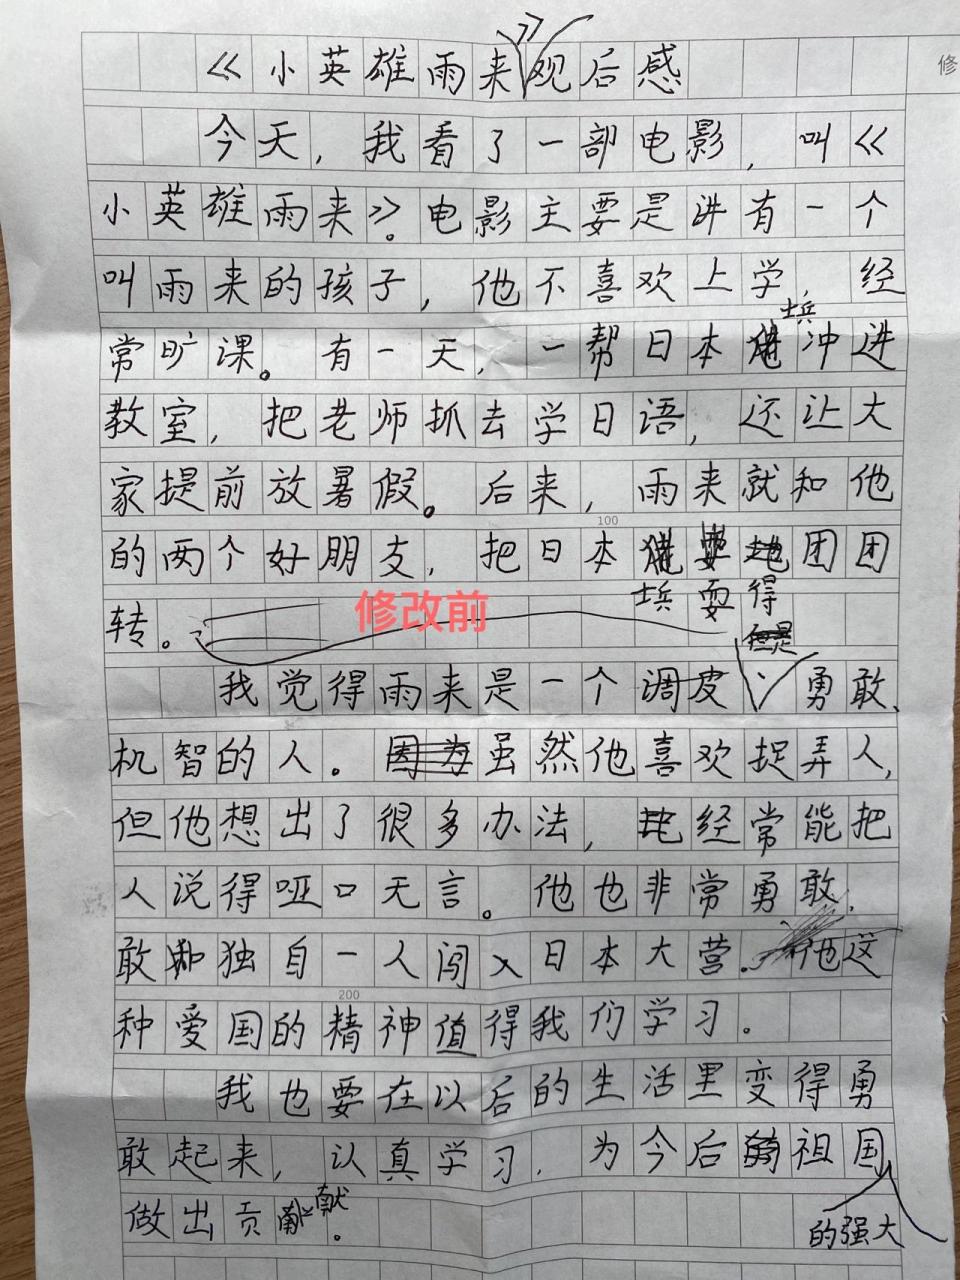 《小英雄雨来》观后感
修
今天，我看了一部电影，叫《
小英雄雨来》。电影主要是讲有一个
叫雨来的孩子，他不喜欢上学，经
士兵
常旷课。有一天，一帮日本冲进
教室，把老师抓去学日语，还让大
家提前放暑假。后来，雨来就和他
100
的两个好朋友，把日本团团
士兵耍得
转。
修改前
但是
我觉得雨来是一个调皮、勇敢、
机智的人。因为虽然他喜欢捉弄人，
但他想出了很多办法，经常能把
人说得哑口无言。他也非常勇敢，
敢独自一人闯入日本大营。他这
200
种爱国的精神值得我们学习。
我也要在以后的生活里变得勇
敢起来，认真学习，为今后祖国
的强大
做出贡献。